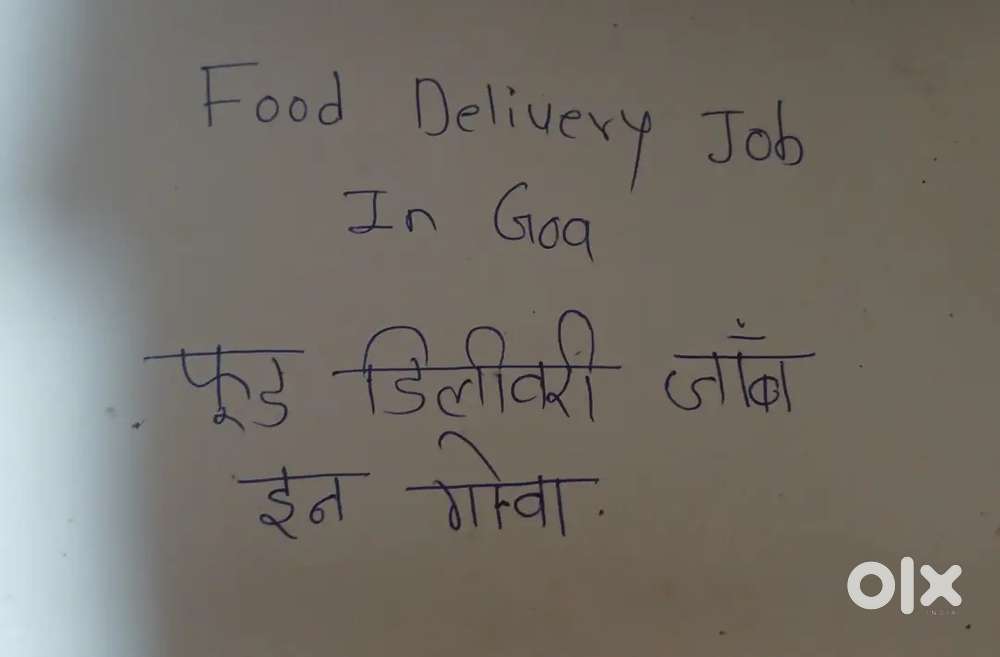 Food Delivery Job
In Goa
फूड डिलीवरी जॉब
इन गोवा.
olx
INDIA